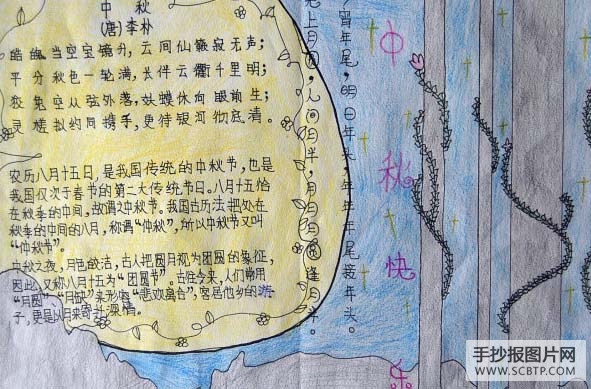 中秋
(唐)李朴
皓魄当空宝镜升，云间仙籁寂无声；
平分秋色一轮满，长伴云衢千里明；
狡兔空从弦外落，妖蟆休向眼前生；
灵槎拟约同携手，更待银河彻底清。
农历八月十五日，是我国传统的中秋节，也是
我国仅次于春节的第二大传统节日。八月十五恰
在秋季的中间，故谓之中秋节。我国古历法把处在
秋季的中间的八月，称谓“仲秋”，所以中秋节又叫
“仲秋节”。
中秋之夜，月色皎洁，古人把圆月视为团圆的象征，
因此，又称八月十五为“团圆节”。古往今来，人们常用
“月圆”、“月缺”来形容“悲欢离合”，客居他乡的游
子，更是以月来寄托深情。
上月圆，人间月半，月月月圆逢月半。
宵年尾，明日年头，年年年尾接年头。
中秋快乐
手抄报图片网
WWW.SCBTP.COM